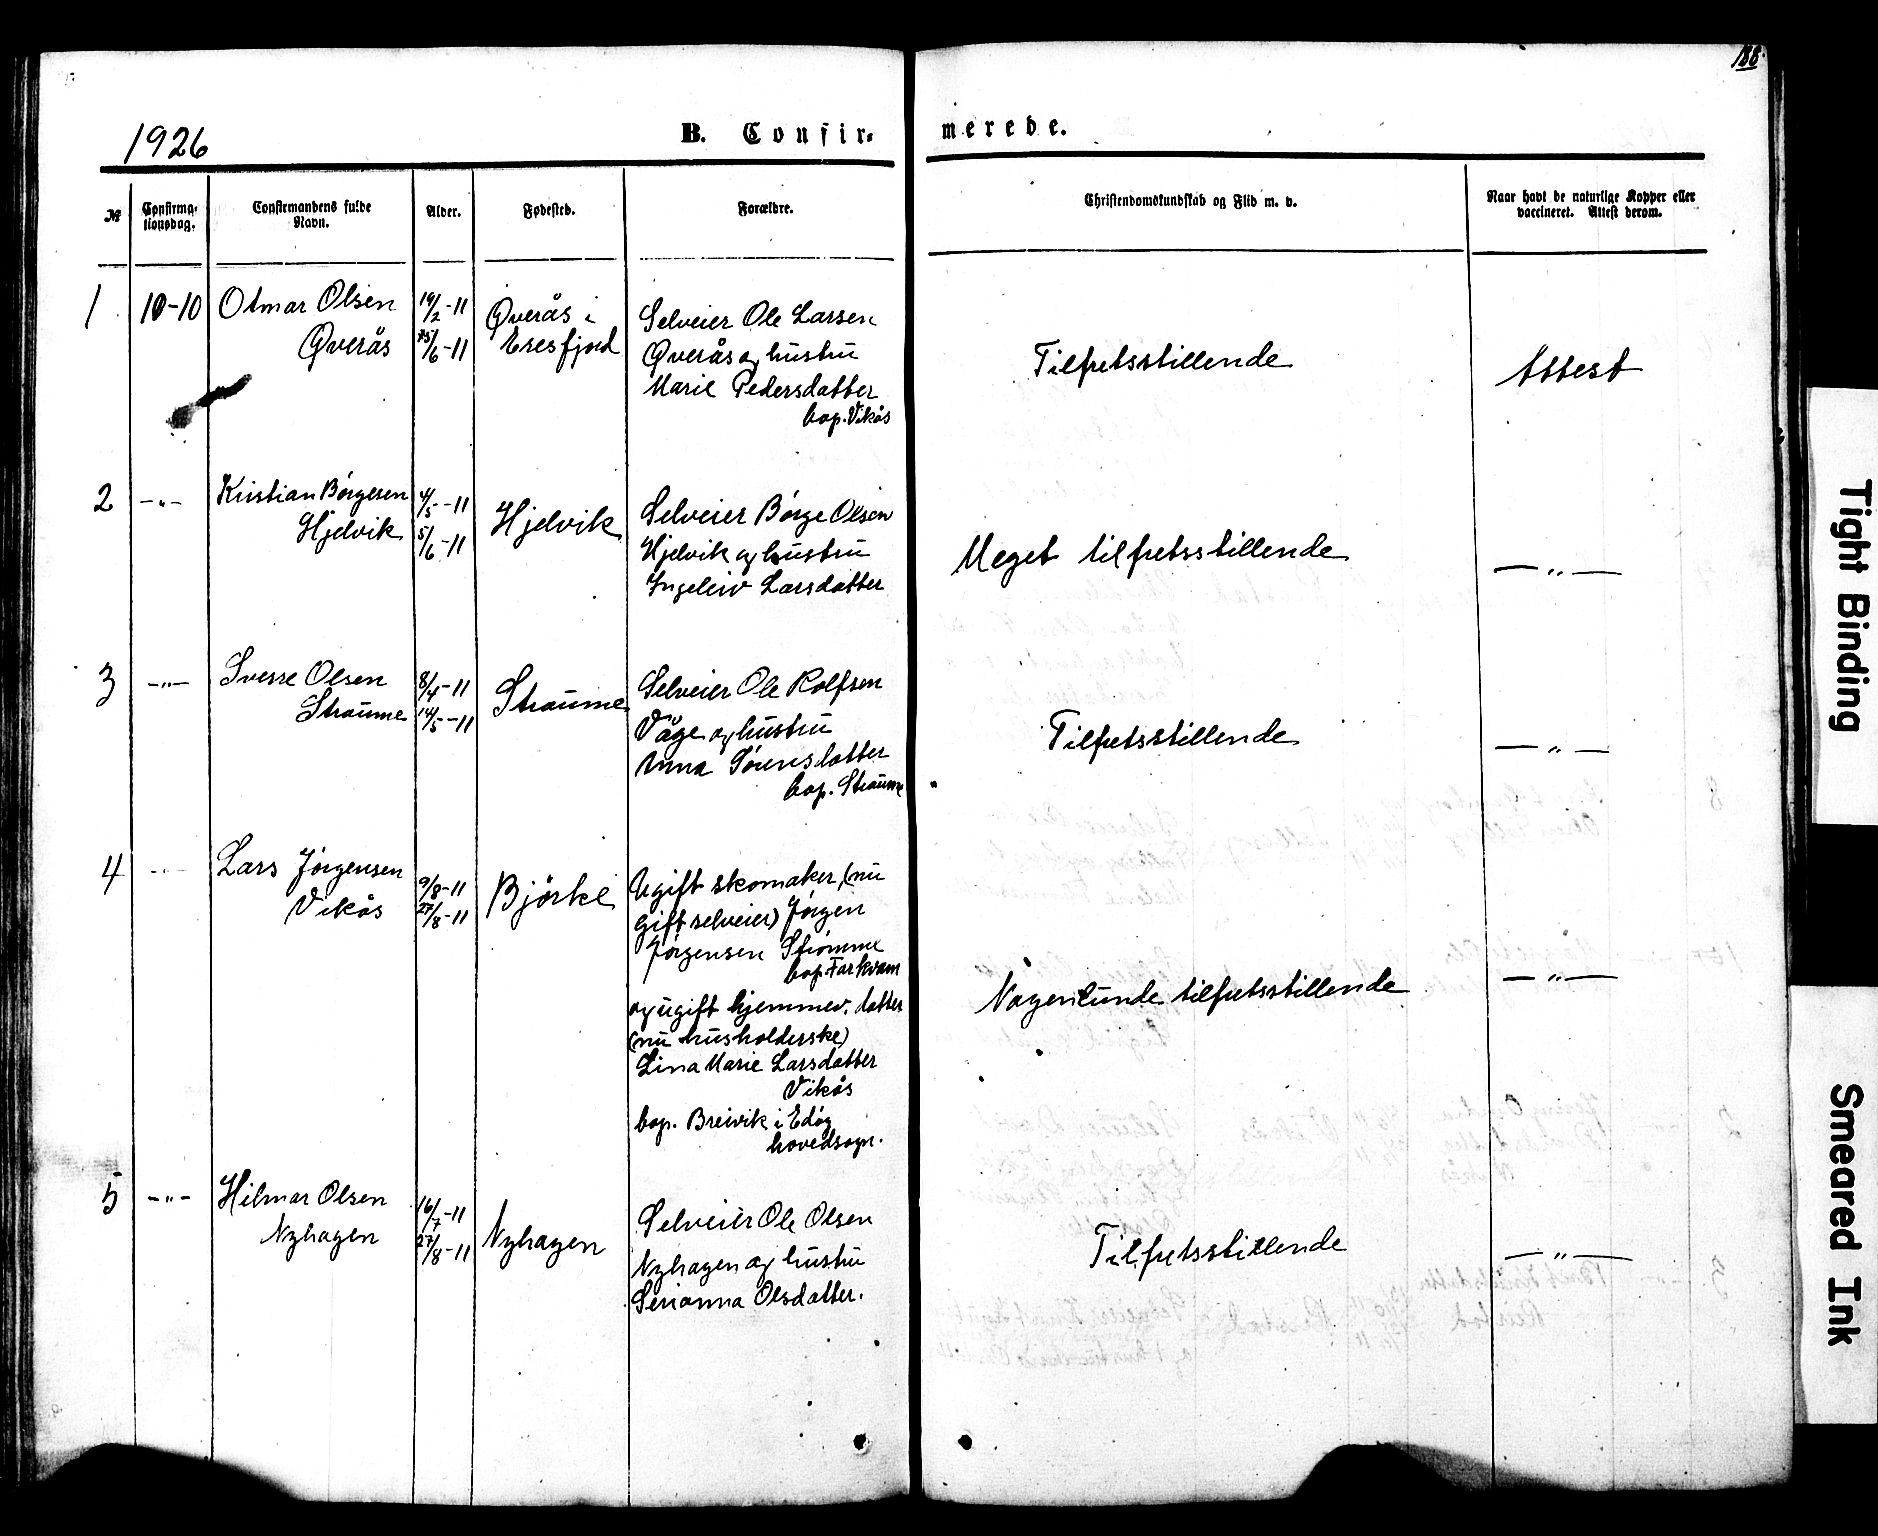 188
1926
B. Confir-
merede.
№
Confirma-
tionsdag.
Confirmandens fulde
Navn.
Alder.
Fødested.
Forældre.
Christendomskundskab og Flid m. v.
Naar havt de naturlige Kopper eller
vaccineret. Attest derom.
1
10-10
Otmar Olsen
Øverås
19/2-11
25/6-11
Øverås i
Eresfjord
Selveier Ole Larsen
Øverås og hustru
Marie Pedersdatter
bop. Vikås
Tilfretsstillende
Attest
2
-"-
Kristian Börgesen
Hjelvik
4/5-11
5/6-11
Hjelvik
Selveier Börge Olsen
Hjelvik og hustru
Ingeleiv Larsdatter
Meget tilfretsstillende
-"-
3
-"-
Sverre Olsen
Straume
8/4-11
14/5-11
Straume
Selveier Ole Rolfsen
Våge og hustru
Anna Sörensdatter
bop. Straume
Tilfretsstillende
-"-
4
-"-
Lars Jörgensen
Vikås
9/8-11
27/8-11
Björke
Ugift skomaker, (nu
gift selveier) Jörgen
Jörgensen Strömme
bop. Farkvam
og ugift hjemmev. datter
(nu husholderske)
Lina Marie Larsdatter
Vikås
bop. Breivik i Edöy
hovedsogn.
Nogenlunde tilfretsstillende
-"-
5
-"-
Hilmar Olsen
Nyhagen
16/7-11
27/8-11
Nyhagen
Selveier Ole Olsen
Nyhagen og hustru
Serianna Olsdatter.
Tilfretsstillende
-"-
Tight Binding
Smeared Ink